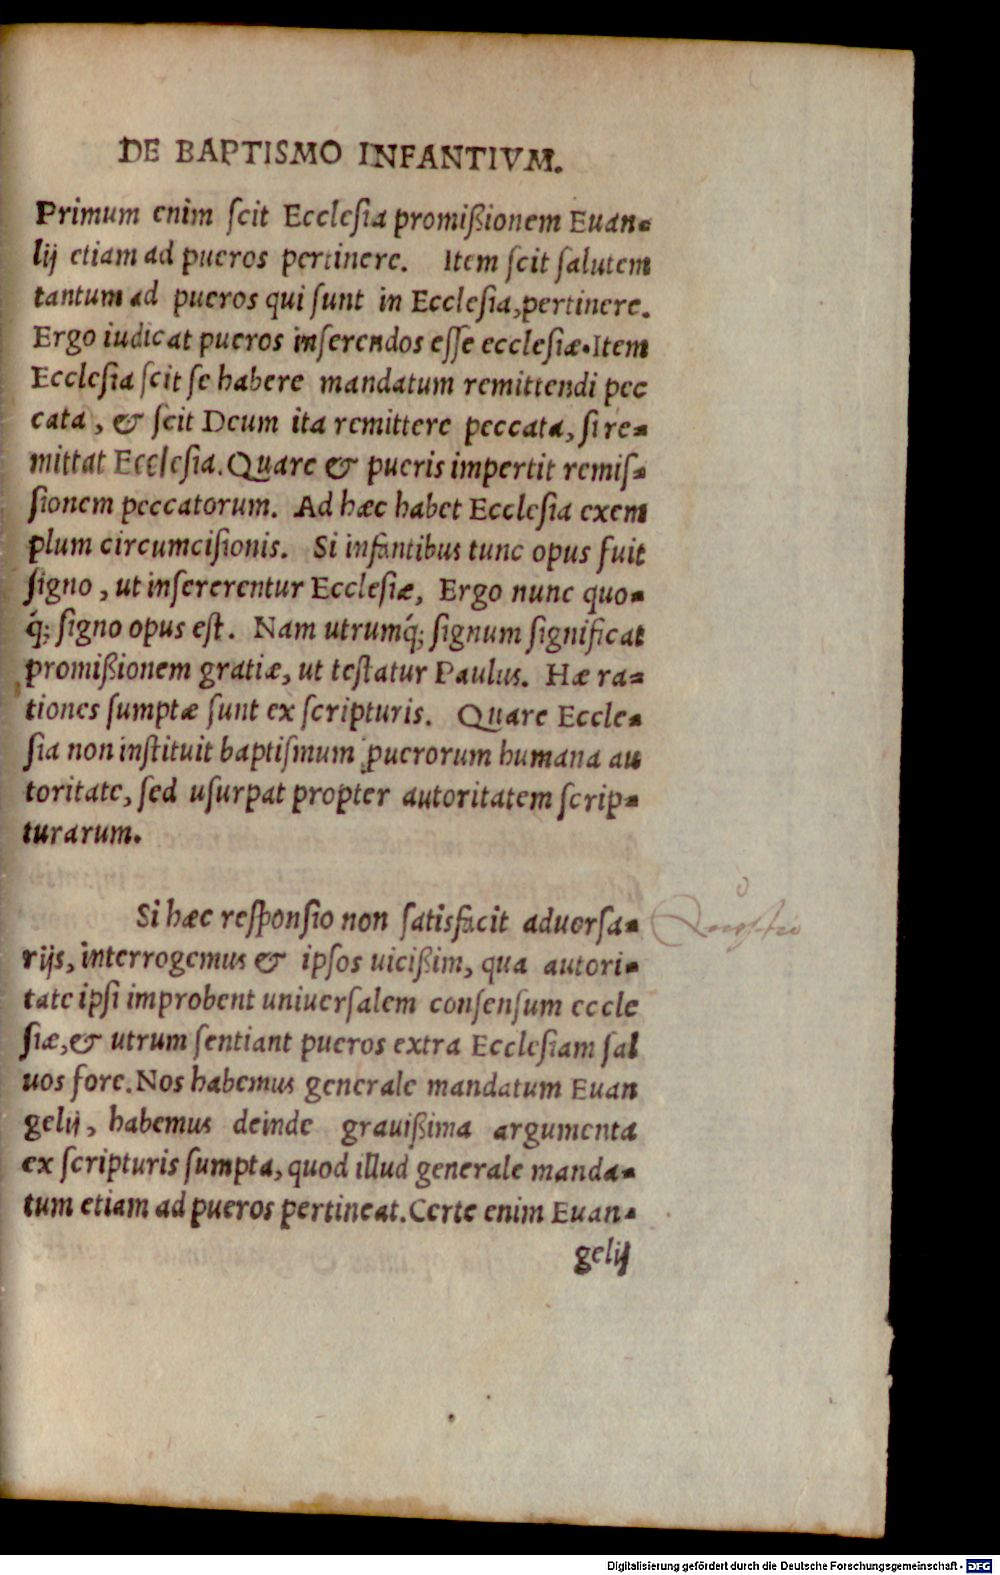 DE BAPTISMO INFANTIVM.
Primum enim ſcit Eccleſia promißionem Euan-
lij etiam ad pueros pertinere. Item ſcit ſalutem
tantum ad pueros qui ſunt in Eccleſia, pertinere.
Ergo iudicat pueros inſerendos eſſe eccleſiæ. Item
Eccleſia ſcit ſe habere mandatum remittendi pec
cata, & ſcit Deum ita remittere peccata, ſi re-
mittat Eccleſia. Quare & pueris impertit remiſ-
ſionem peccatorum. Ad hæc habet Eccleſia exem
plum circumciſionis. Si infantibus tunc opus fuit
ſigno, ut inſererentur Eccleſiæ, Ergo nunc quo-
q́; ſigno opus eſt. Nam utrumq́; ſignum ſignificat
promißionem gratiæ, ut teſtatur Paulus. Hæ ra-
tiones ſumptæ ſunt ex ſcripturis. Quare Eccle-
ſia non inſtituit baptiſmum puerorum humana au
toritate, ſed uſurpat propter autoritatem ſcrip-
turarum.
Si hæc reſponſio non ſatisfacit aduerſa-
rijs, interrogemus & ipſos uicißim, qua autori-
tate ipſi improbent uniuerſalem conſenſum eccle
ſiæ, & utrum ſentiant pueros extra Eccleſiam ſal
uos fore. Nos habemus generale mandatum Euan
gelij, habemus deinde grauißima argumenta
ex ſcripturis ſumpta, quod illud generale manda-
tum etiam ad pueros pertineat. Certe enim Euan-
gelij
Digitalisierung gefördert durch die Deutsche Forschungsgemeinschaft - DFG